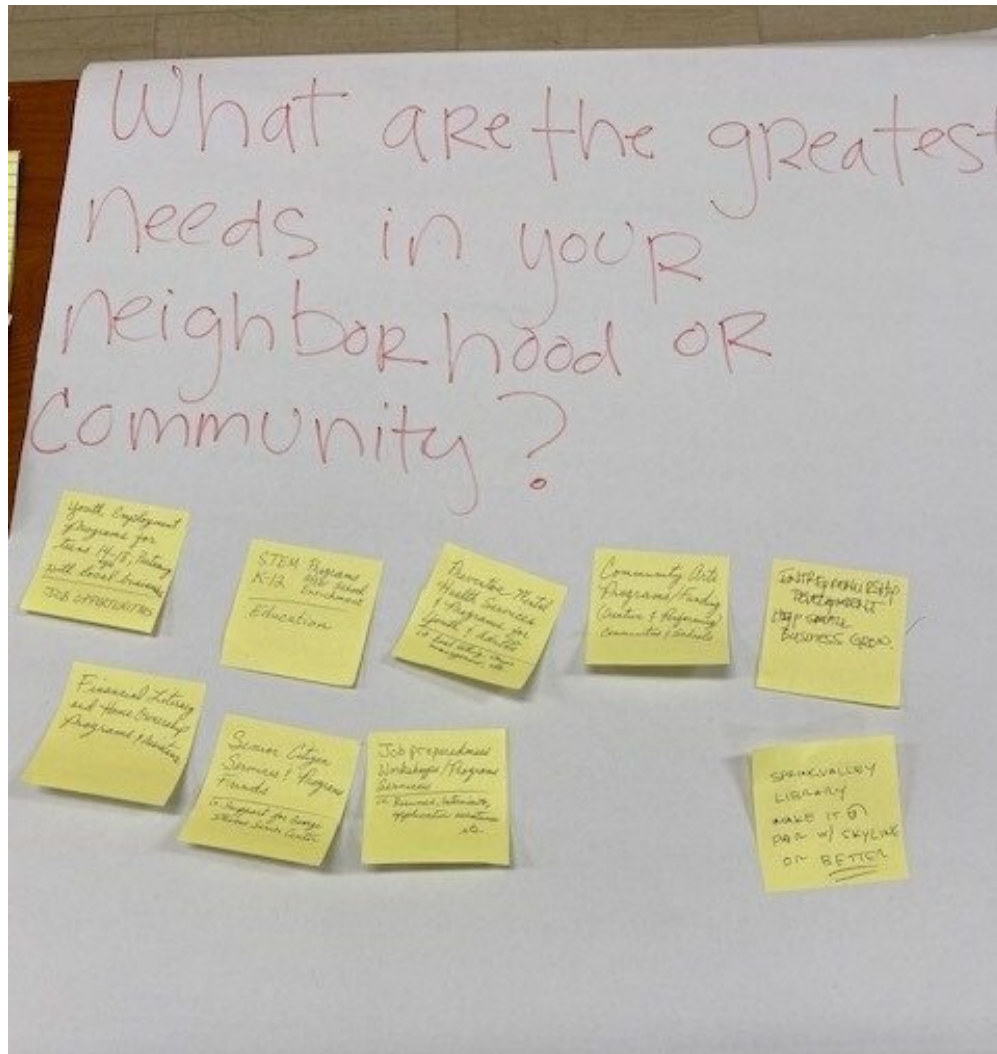 What are the greatest
needs in your
neighborhood or
community?
Youth Employment
Programs for
teens 14-18,
with local
JOB OPPORTUNITIES
STEM Programs
K-12 School
Enrichment
Education
Preventive Mental
Health Services
& Programs for
Youth &
management, etc.
Community Arts
Programs/Funding
(Creative & Performing)
Communities & Schools
DEVELOPMENT
HELP
BUSINESS GROW
Financial Literacy
and Home Ownership
Programs &
Senior Citizen
Services & Programs
Funds
Support for George
Senior Center
Job preparedness
Workshops/Programs
Services
Resumes, Interviews,
application assistance
etc.
SPRING VALLEY
LIBRARY
MAKE IT ON
PAR W/ SKYLINE
OR BETTER